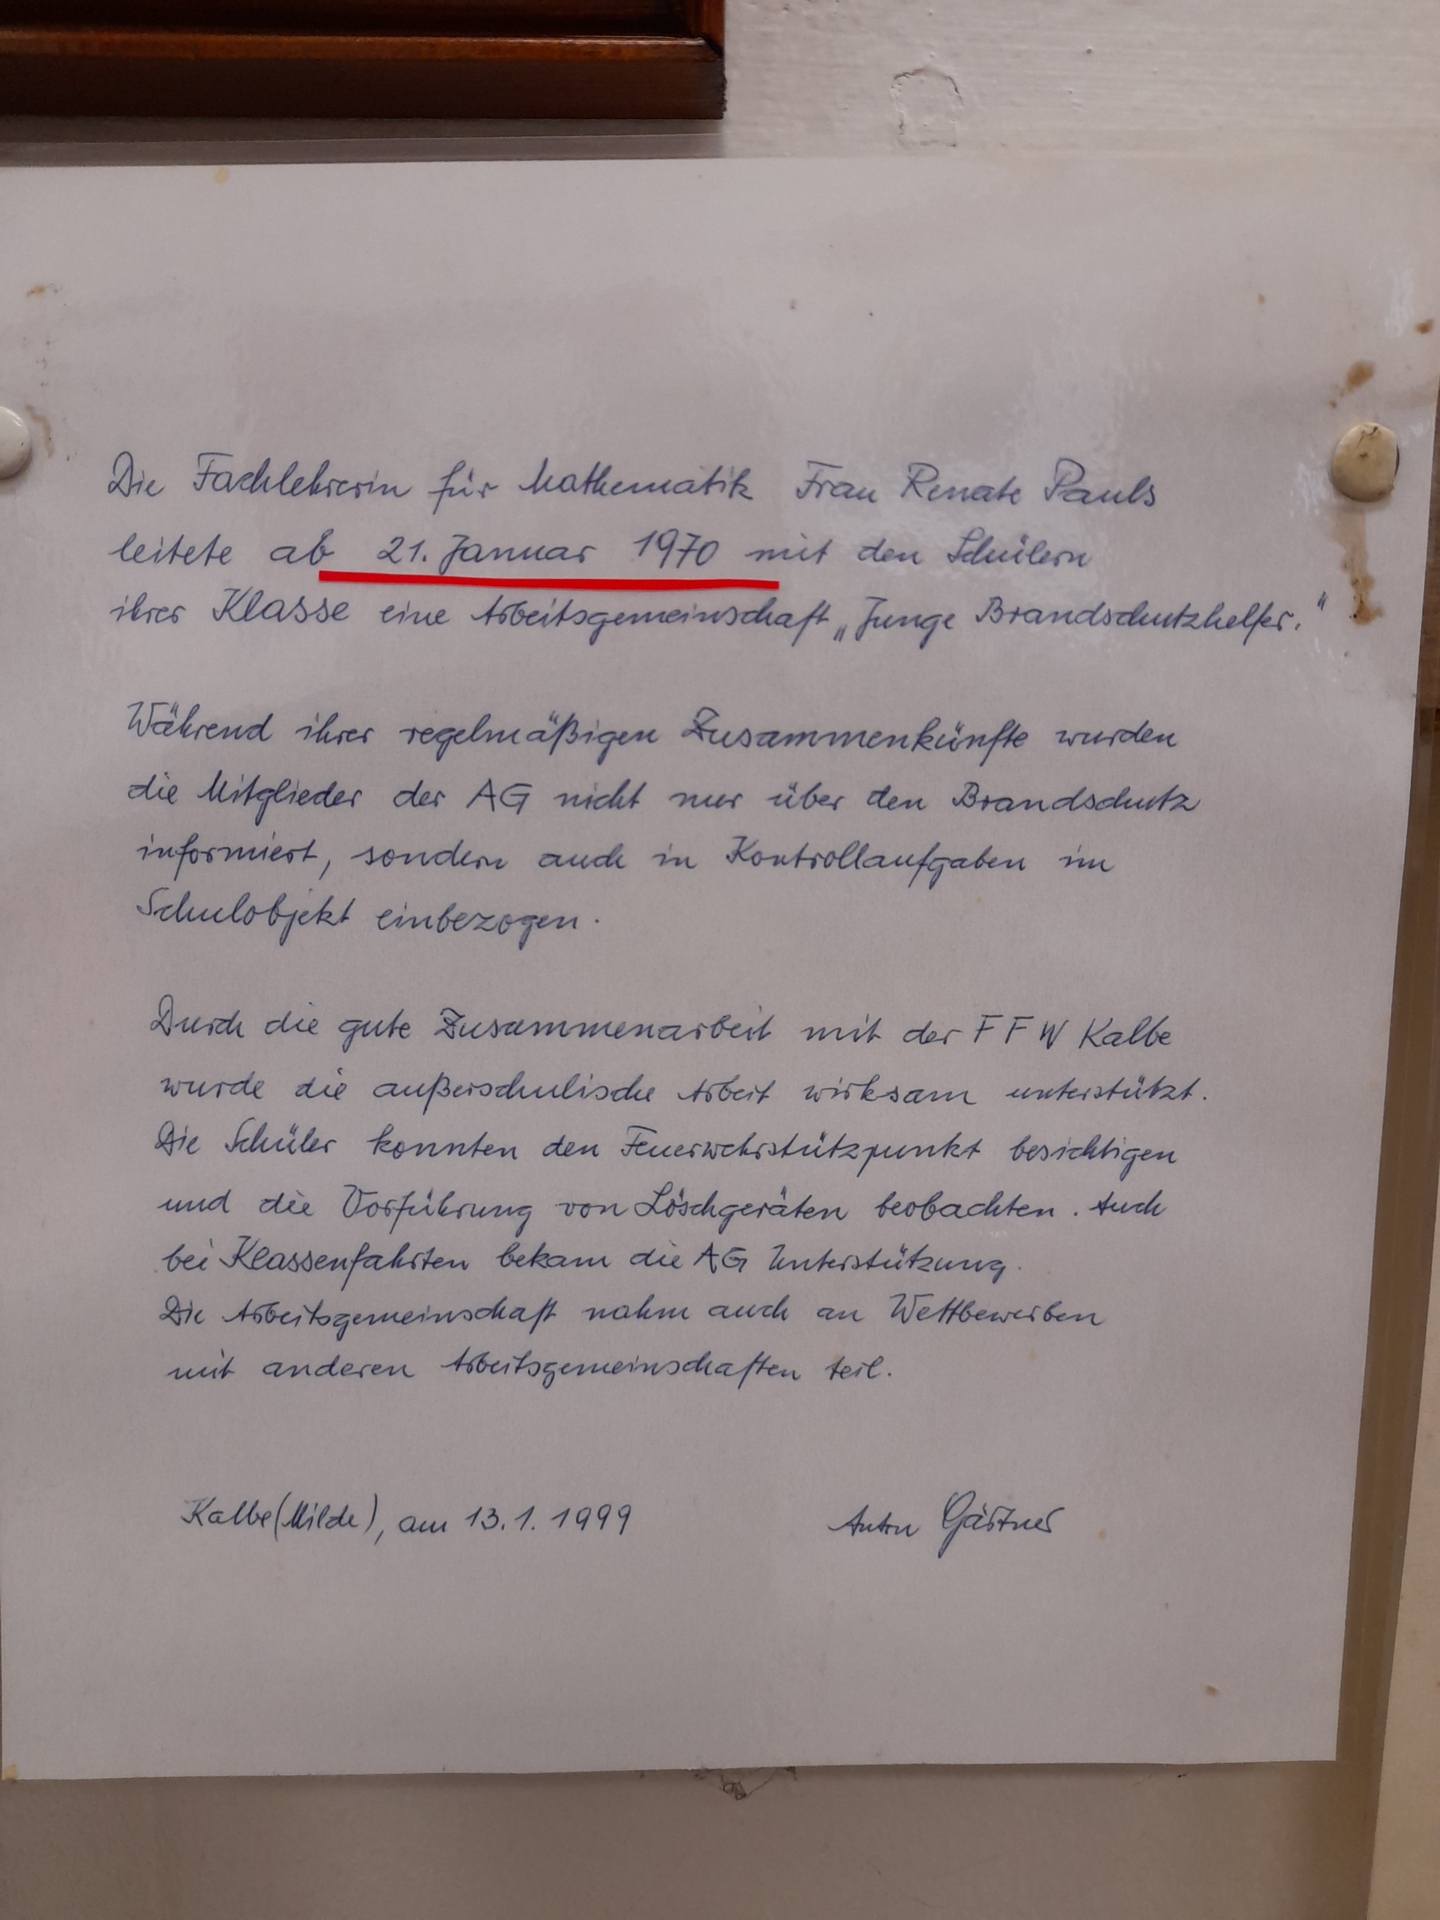 Die Fachlehrerin für Mathematik Frau Renate Pauls
leitete ab 21. Januar 1970 mit den Schülern
ihrer Klasse eine Arbeitsgemeinschaft „Junge Brandschutzhelfer."
Während ihrer regelmäßigen Zusammenkünfte wurden
die Mitglieder der AG nicht nur über den Brandschutz
informiert, sondern auch in Kontrollaufgaben im
Schulobjekt einbezogen.
Durch die gute Zusammenarbeit mit der FFW Kalbe
wurde die außerschulische Arbeit wirksam unterstützt.
Die Schüler konnten den Feuerwehrstützpunkt besichtigen
und die Vorführung von Löschgeräten beobachten. Auch
bei Klassenfahrten bekam die AG Unterstützung.
Die Arbeitsgemeinschaft nahm auch an Wettbewerben
mit anderen Arbeitsgemeinschaften teil.
Kalbe (Milde), am 13.1.1999 Anton Gärtner